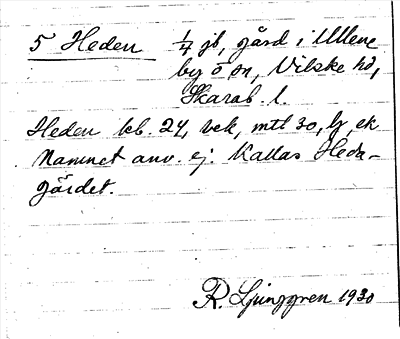 5 Heden 1/4 jb, gård i Ullene
by o sn, Vilske hd,
Skarab. l.
Heden kb. 24, vek, mtl 30, ly, ek
Namnet anv. ej. Kallas Heda-
gärdet.
R. Ljunggren 1930